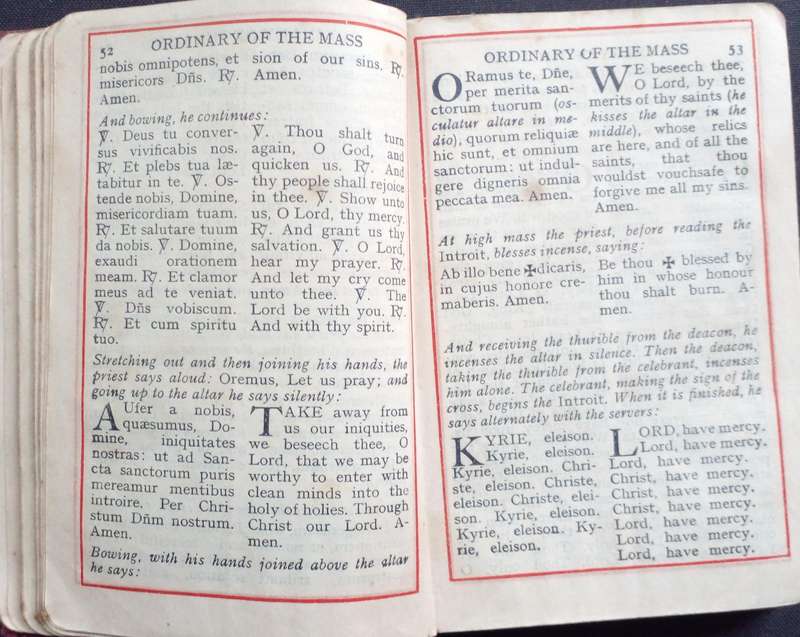 52 ORDINARY OF THE MASS
nobis omnipotens, et
misericors Dñs. ℟.
Amen.
sion of our sins, ℟.
Amen.
And bowing, he continues:
℣. Deus tu conver-
sus vivificabis nos.
℟. Et plebs tua læ-
tabitur in te. ℣. Os-
tende nobis, Domine,
misericordiam tuam.
℟. Et salutare tuum
da nobis. ℣. Domine,
exaudi orationem
meam. ℟. Et clamor
meus ad te veniat.
℣. Dñs vobiscum.
℟. Et cum spiritu
tuo.
℣. Thou shalt turn
again, O God, and
quicken us. ℟. And
thy people shall rejoice
in thee. ℣. Show unto
us, O Lord, thy mercy.
℟. And grant us thy
salvation. ℣. O Lord,
hear my prayer. ℟.
And let my cry come
unto thee. ℣. The
Lord be with you. ℟.
And with thy spirit.
Stretching out and then joining his hands, the
priest says aloud: Oremus, Let us pray; and
going up to the altar he says silently:
AUfer a nobis,
quæsumus, Do-
mine, iniquitates
nostras: ut ad San-
cta sanctorum puris
mereamur mentibus
introire. Per Chri-
stum Dñm nostrum.
Amen.
TAKE away from
us our iniquities,
we beseech thee, O
Lord, that we may be
worthy to enter with
clean minds into the
holy of holies. Through
Christ our Lord. A-
men.
Bowing, with his hands joined above the altar
he says:
ORDINARY OF THE MASS 53
ORamus te, Dñe,
per merita san-
ctorum tuorum (os-
culatur altare in me-
dio), quorum reliquiæ
hic sunt, et omnium
sanctorum: ut indul-
gere digneris omnia
peccata mea. Amen.
WE beseech thee,
O Lord, by the
merits of thy saints (he
kisses the altar in the
middle), whose relics
are here, and of all the
saints, that thou
wouldst vouchsafe to
forgive me all my sins.
Amen.
At high mass the priest, before reading the
Introit, blesses incense, saying:
Ab illo bene ✠dicaris,
in cujus honore cre-
maberis. Amen.
Be thou ✠ blessed by
him in whose honour
thou shalt burn. A-
men.
And receiving the thurible from the deacon, he
incenses the altar in silence. Then the deacon,
taking the thurible from the celebrant, incenses
him alone. The celebrant, making the sign of the
cross, begins the Introit. When it is finished, he
says alternately with the servers:
KYRIE, eleison.
Kyrie, eleison.
Kyrie, eleison. Chri-
ste, eleison. Christe,
eleison. Christe, elei-
son. Kyrie, eleison.
Kyrie, eleison. Ky-
rie, eleison.
LORD, have mercy.
Lord, have mercy.
Lord, have mercy.
Christ, have mercy.
Christ, have mercy.
Christ, have mercy.
Lord, have mercy.
Lord, have mercy.
Lord, have mercy.